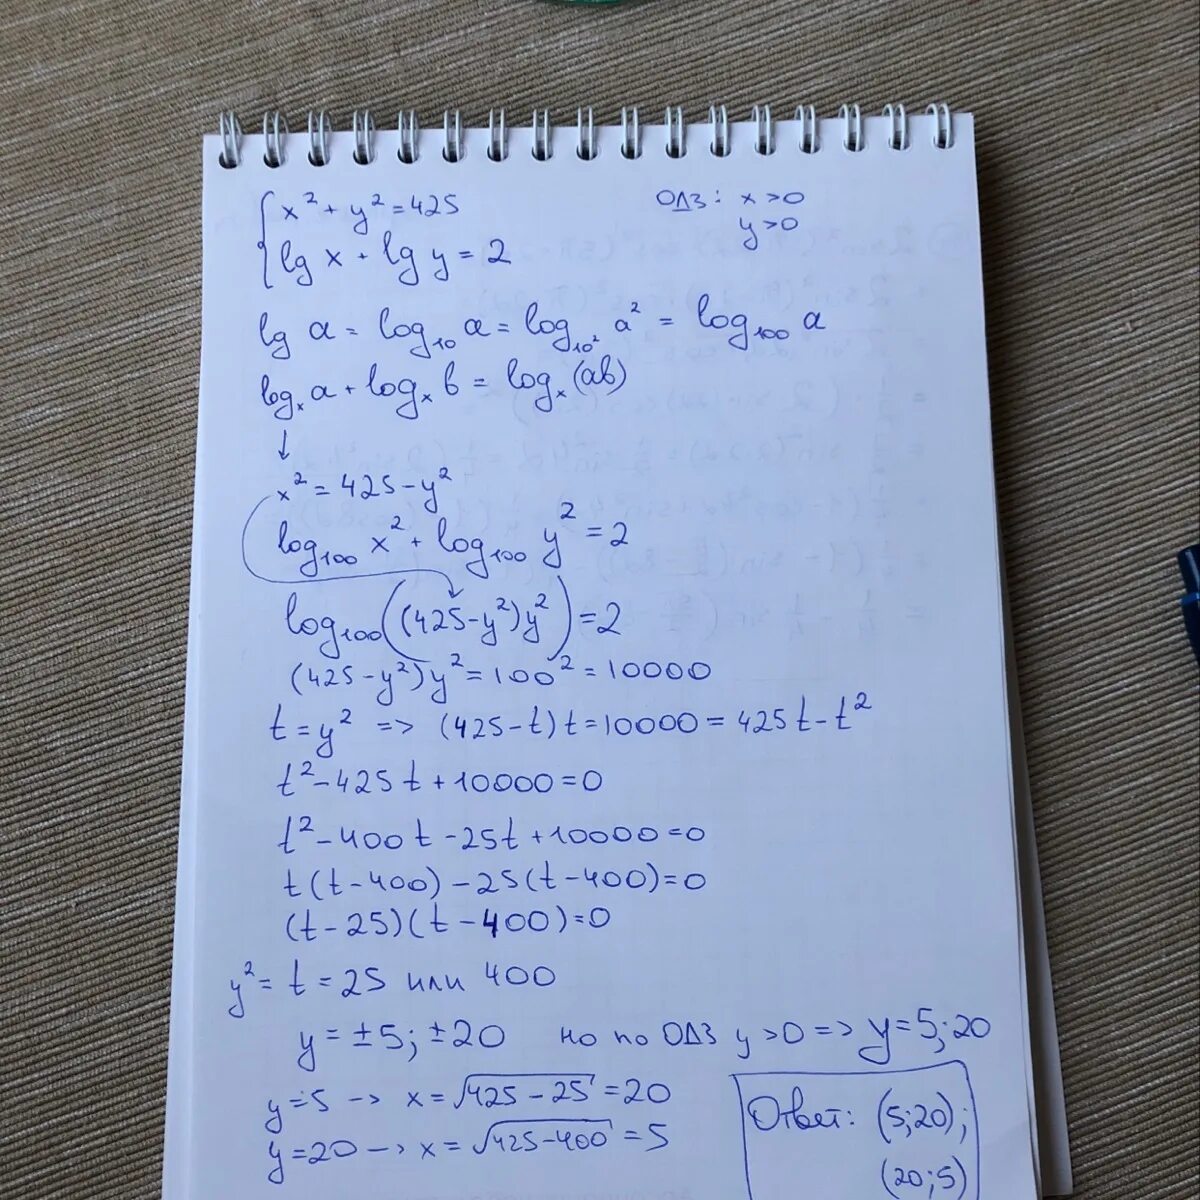 x² + y² = 425
lg x + lg y = 2
ОДЗ: x > 0
y > 0
lg a = log₁₀ a = log₁₀² a² = log₁₀₀ a
logₓ a + logₓ b = logₓ (ab)
↓
x² = 425 - y²
log₁₀₀ x² + log₁₀₀ y² = 2
log₁₀₀ ((425 - y²) y²) = 2
(425 - y²) y² = 100² = 10000
t = y² => (425 - t) t = 10000 = 425 t - t²
t² - 425 t + 10000 = 0
t² - 400 t - 25t + 10000 = 0
t (t - 400) - 25 (t - 400) = 0
(t - 25) (t - 400) = 0
y² = t = 25 или 400
y = ±5; ±20 но по ОДЗ y > 0 => y = 5; 20
y = 5 -> x = √(425 - 25) = 20
y = 20 -> x = √(425 - 400) = 5
Ответ: (5; 20);
(20; 5)